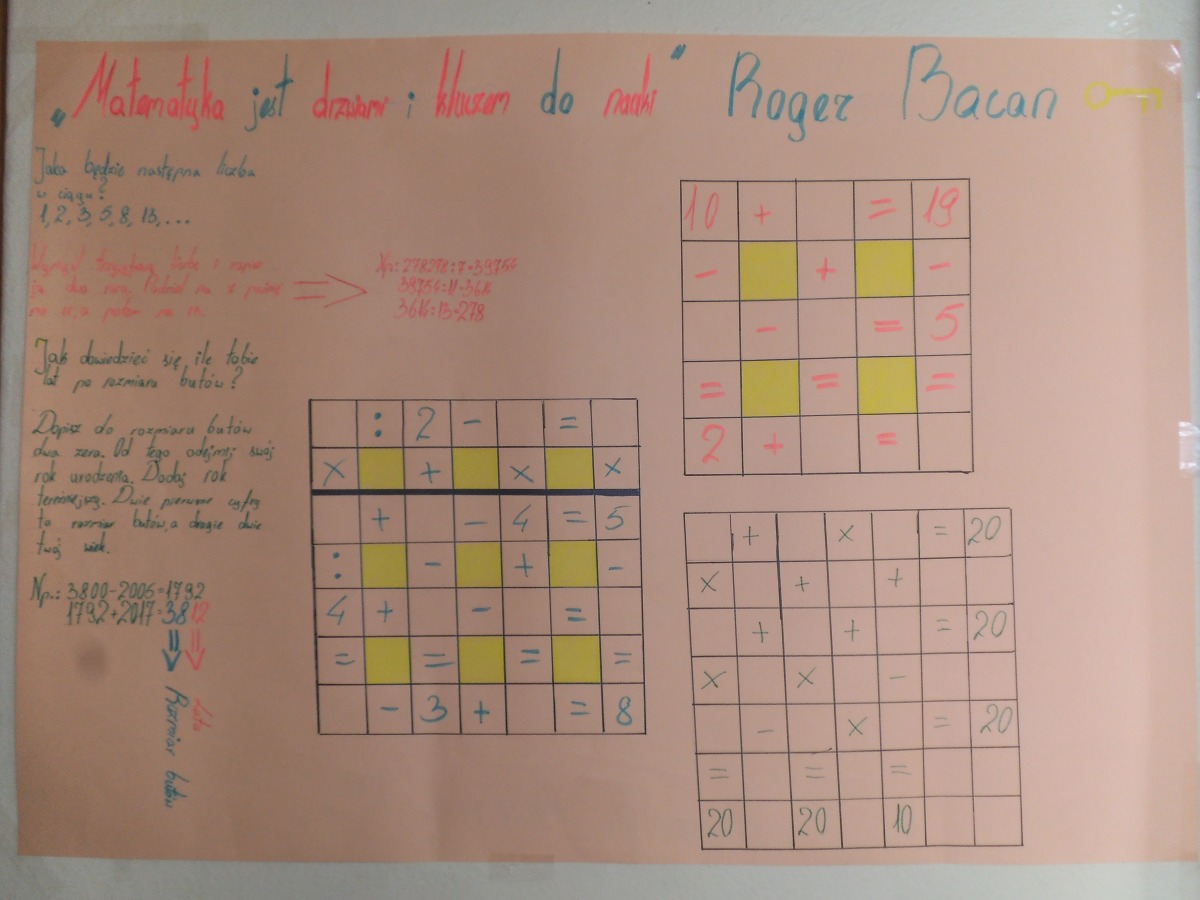 „Matematyka jest drzwiami i kluczem do nauki" Roger Bacan
Jaka będzie następna liczba
w ciągu?
1, 2, 3, 5, 8, 13, ...
Wymyśl trzycyfrową liczbę i
ją dwa razy. Podziel na 7, później
na 11, a potem na 13.
Np.: 278278:7=39754
39754:11=3614
3614:13=278
Jak dowiedzieć się, ile tobie
lat po rozmiaru butów?
Dopisz do rozmiaru butów
dwa zera. Od tego odejmij swój
rok urodzenia. Dodaj rok
teraźniejszy. Dwie pierwsze cyfry
to rozmiar butów, a drugie dwie
twój wiek.
Np.: 3800-2005=1792
1792+2017=3812
Rozmiar butów
Lata
10 + = 19
- + -
- = 5
= = =
2 + =
: 2 - =
x + x x
+ - 4 = 5
: - + -
4 + - =
= = = =
- 3 + = 8
+ x = 20
x + +
+ + = 20
x x -
- x = 20
= = =
20 20 10